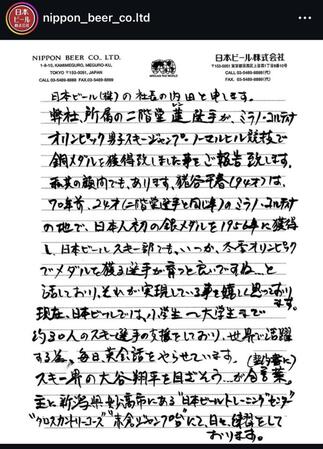 nippon_beer_co.ltd
日本ビール
NIPPON BEER CO., LTD.
1-8-10, KAMIMEGURO, MEGURO-KU,
TOKYO 〒153-0051, JAPAN
CALL 03-5489-8888 FAX.03-5489-8889
日本ビール株式会社
〒153-0051 東京都目黒区上目黒
CALL 03-5489-8888(代)
FAX 03-5489-8889(代)
日本ビール(株)の社長の内田と申します。
弊社、所属の二階堂蓮選手が、ミラノ・コルティナ
オリンピック男子スキージャンプノーマルヒル競技で
銅メダルを獲得致しました事をご報告致します。
弊社の顧問でも、あります、猪谷千春(94才)は、
70年前、24才(二階堂選手と同じ年)のミラノ・コルティナ
の地で、日本人初の銀メダルを1956年に獲得
し、日本ビールスキー部でも、いつか、冬季オリンピック
でメダルを獲る選手が育つと良いですね…と
話しており、それが実現している事を嬉しく思っております。
現在、日本ビールでは、小学生〜大学生まで
約30人のスキー選手の支援をしており、世界で活躍
する為、毎日、英会話をやらせています。(契約書に)
スキー界の大谷翔平を目ざそう…が合言葉。
主に新潟県妙高市にある"日本ビールトレーニングセンター"
"クロスカントリーコース" "ジャンプ台"にて、日々、練習をして
おります。